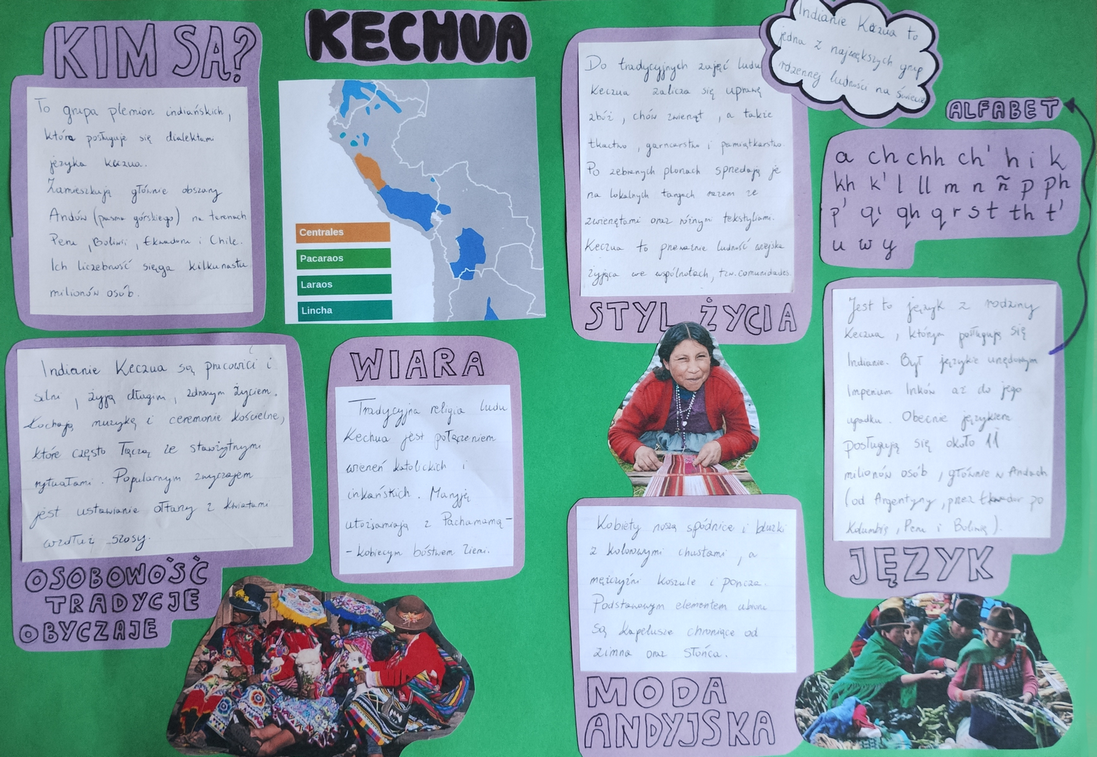 KIM SĄ?
To grupa plemion indiańskich,
która posługuje się dialektami
języka keczua.
Zamieszkują głównie obszary
Andów (pasma górskiego) na terenach
Peru, Boliwi, Ekwadoru i Chile.
Ich liczebność sięga kilkunastu
milionów osób.
KECHUA
Centrales
Pacaraos
Laraos
Lincha
Do tradycyjnych zajęć ludu
Keczua zalicza się uprawę
zbóż, chów zwierząt, a także
tkactwo, garncarstwo i pamiątkarstwo.
Po zebranych plonach sprzedają je
na lokalnych targach razem ze
zwierzętami oraz różnym tekstyliami.
Keczua to przeważnie ludność wiejska
żyjąca we wspólnotach, tzw. comunidades
STYL ŻYCIA
Indianie Keczua to
jedna z największych grup
rdzennej ludności na świecie
ALFABET
a ch chh ch' h i k
kh k' l ll m n ñ p ph
p' q' qh q r s t th t'
u w y
Indianie Keczua są pracowici i
silni, żyją długim, zdrowym życiem.
Kochają muzykę i ceremonie kościelne,
które często łączą ze starożytnymi
rytuałami. Popularnym zwyczajem
jest ustawianie ołtarzy z kwiatami
wzdłuż szosy.
OSOBOWOŚĆ
TRADYCJE
OBYCZAJE
WIARA
Tradycyjna religia ludu
Kechua jest połączeniem
wierzeń katolickich i
inkańskich. Maryję
utożsamiają z Pachamamą -
- kobiecym bóstwem Ziemi.
Kobiety noszą spódnice i bluzki
z kolorowymi chustami, a
mężczyźni koszule i poncza.
Podstawowym elementem ubioru
są kapelusze chroniące od
zimna oraz słońca.
MODA
ANDYJSKA
Jest to język z rodziny
Keczua, którym posługują się
Indianie. Był językiem urzędowym
Imperium Inków aż do jego
upadku. Obecnie językiem
posługują się około 11
milionów osób, głównie w Andach
(od Argentyny, przez Ekwador po
Kolumbię, Peru i Boliwię).
JĘZYK